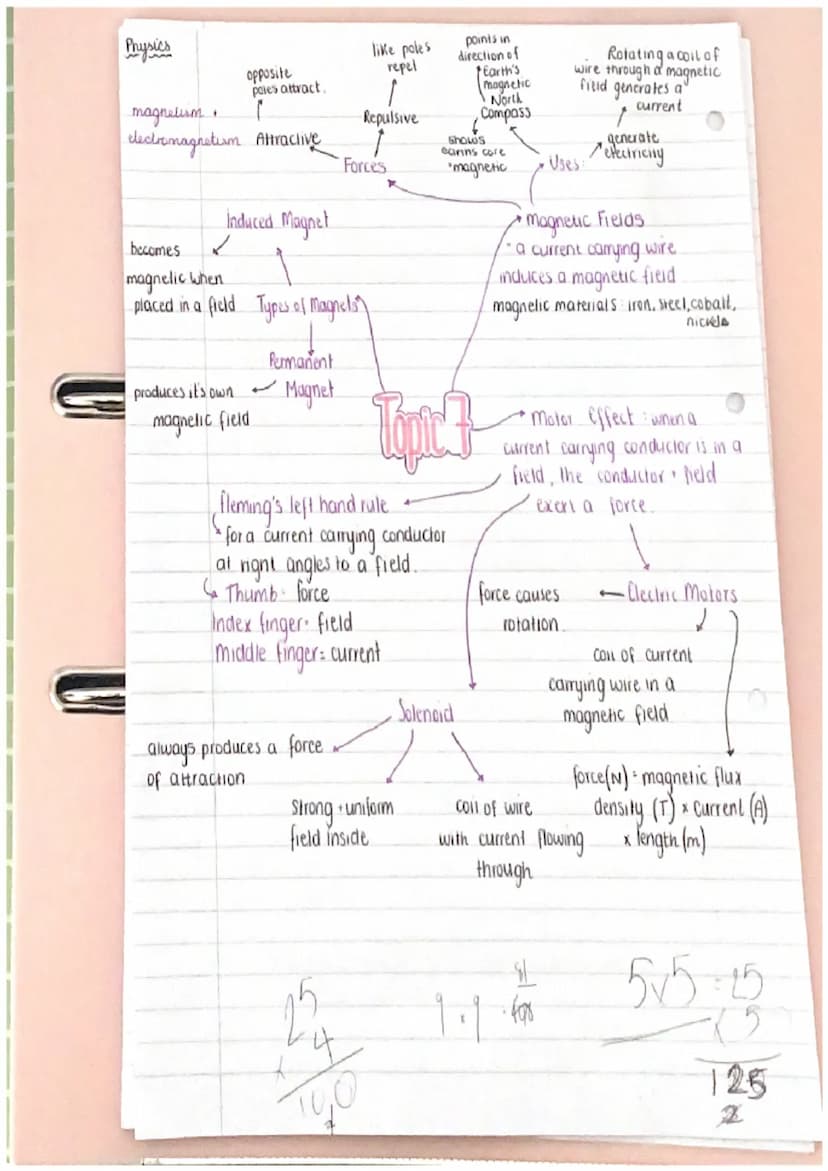 Physics
magnetism +
electromagnetism
opposite
poles attract.
Attractive
like poles
repel
Repulsive
Forces
points in
direction of
Earth's
magnetic
North
Compass
shows
earths core
magnetic
Rotating a coil of
wire through a magnetic
field generates a
current
generate
electricity
Uses
Induced Magnet
becomes
magnetic when
placed in a field
Types of Magnets
Permanent
Magnet
produces it's own
magnetic field
Magnetic Fields
- a current carrying wire
induces a magnetic field
magnetic materials: iron, steel, cobalt,
Topic 7
Motor Effect: when a
current carrying conductor is in a
field, the conductor + field
exert a force.
fleming's left hand rule
for a current carrying conductor
at right angles to a field.
Thumb = force
Index finger = field
Middle finger = current
Electric Motors
force causes
rotation.
coil of current
carrying wire in a
magnetic field
force(N) = magnetic flux
density (T) × current (A)
× length (m)
Solenoid
always produces a force
of attraction
strong + uniform
field inside
coil of wire
with current flowing
through
25
4
×
100
9 × 9
81
5×5 = 25
× 5
125
2